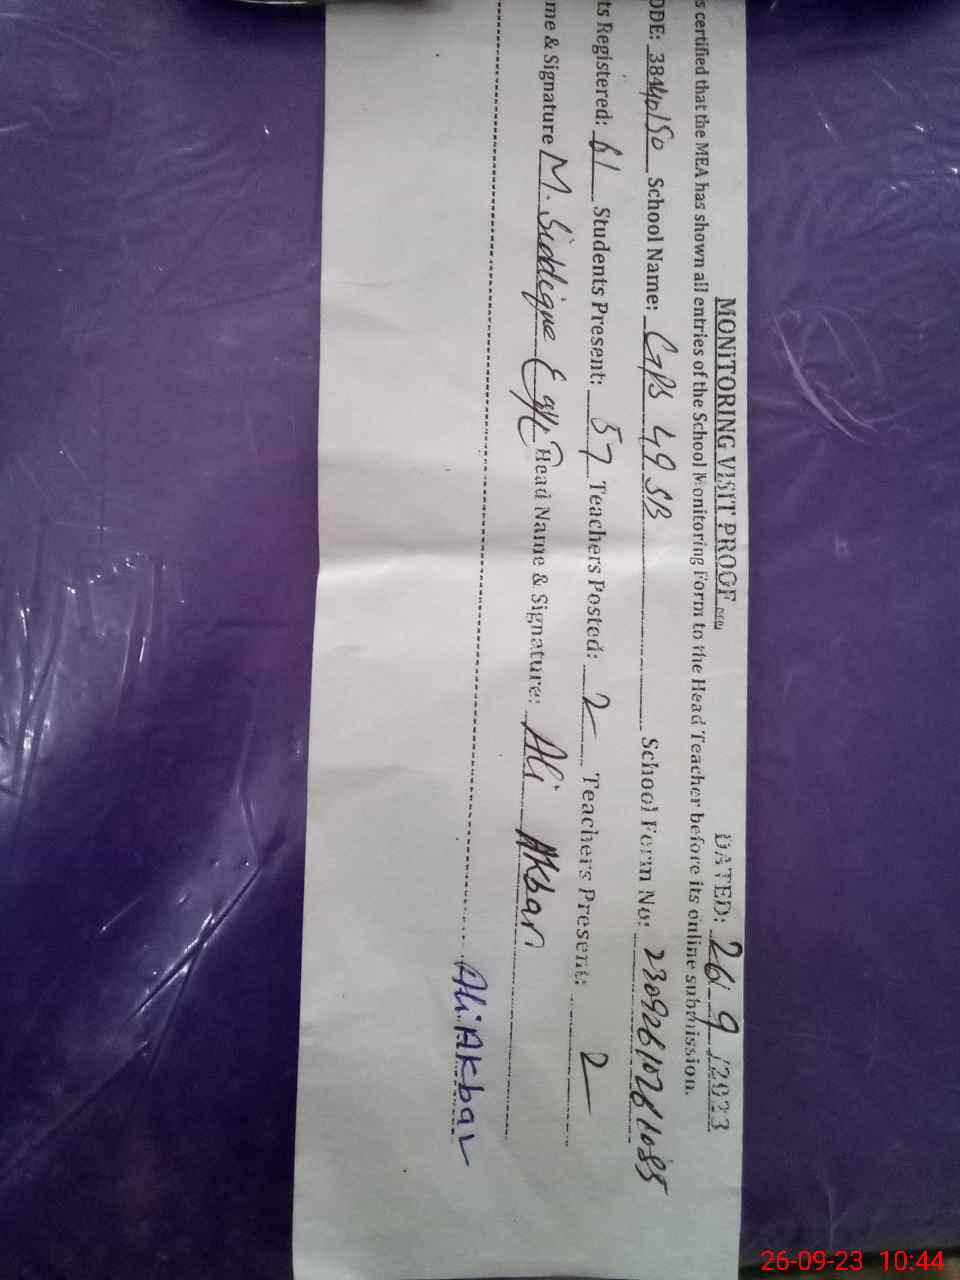 MONITORING VISIT PROOF
DATED: 26/9/2023
s certified that the MEA has shown all entries of the School Monitoring Form to the Head Teacher before its online submission.
ODE: 38440150 School Name: GPS 49 SB School Form No: 23092610261085
ts Registered: 61 Students Present: 57 Teachers Posted: 2 Teachers Present: 2
me & Signature M. Siddique Head Name & Signature: Ali Akbar
Ali Akbar
26-09-23 10:44